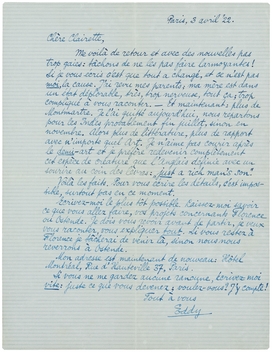 Paris, 3 avril '22.
Chère Clairette,
Me voilà de retour et avec des nouvelles pas
trop gaies: tâchons de ne les pas faire larmoyantes!
Si je vous écris c'est que tout a changé, et ce n'est pas
moi, la cause. J'ai revu mes parents, ma mère est dans
un état déplorable, très, trop nerveuse, tout ça, trop
compliqué à vous raconter. — et maintenant: plus de
Montmartre. Je l'ai quitté aujourd'hui, nous repartons
pour les Indes probablement fin juillet, sinon en
novembre. Alors plus de littérature, plus de rapport
avec n'importe quel Art. Je n'aime pas courir après
le demi-art et je préfère redevenir complètement
cet espèce de créature que l'Anglais définie avec un
sourire au coin des lèvres: just a rich man's son"
Voilà les faits. Pour vous écrire les détails, c'est impos-
sible, surtout pas en ce moment.
Écrivez-moi le plus tôt possible. Laissez-moi savoir
ce que vous allez faire, vos projets concernant Florence
ou Ostende. Je dois vous revoir avant de partir, je veux
vous raconter, vous expliquer tout. Si vous restez à
Florence je tâcherai de venir là, sinon nous nous
reverrons à Ostende.
Mon adresse est maintenant de nouveau: Hôtel
Montréal, Rue d'Hauteville 37, Paris.
Si vous ne me gardez aucune rancune, écrivez-moi
vite: juste ce que vous devenez; voulez-vous? J'y compte!
Tout à vous
Eddy